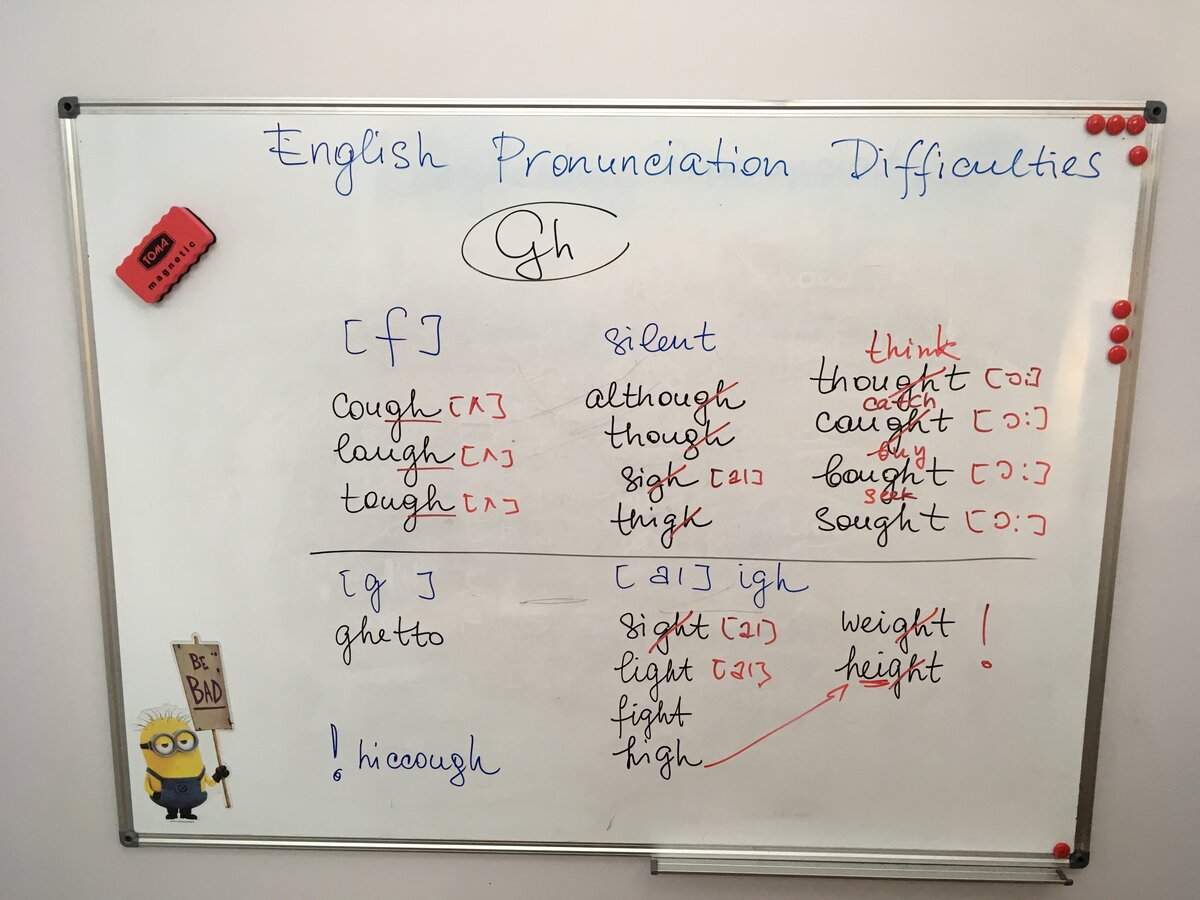 English Pronunciation Difficulties
Gh
TOMA
magnetic
[f]
cough [ʌ]
laugh [ʌ]
tough [ʌ]
silent
although
though
sigh [aı]
thigh
think
thought [ɔ:]
catch
caught [ɔ:]
buy
bought [ɔ:]
seek
sought [ɔ:]
[g]
ghetto
! hiccough
[aı] igh
sight [aı]
light [aı]
fight
high
weight !
height
BE
BAD